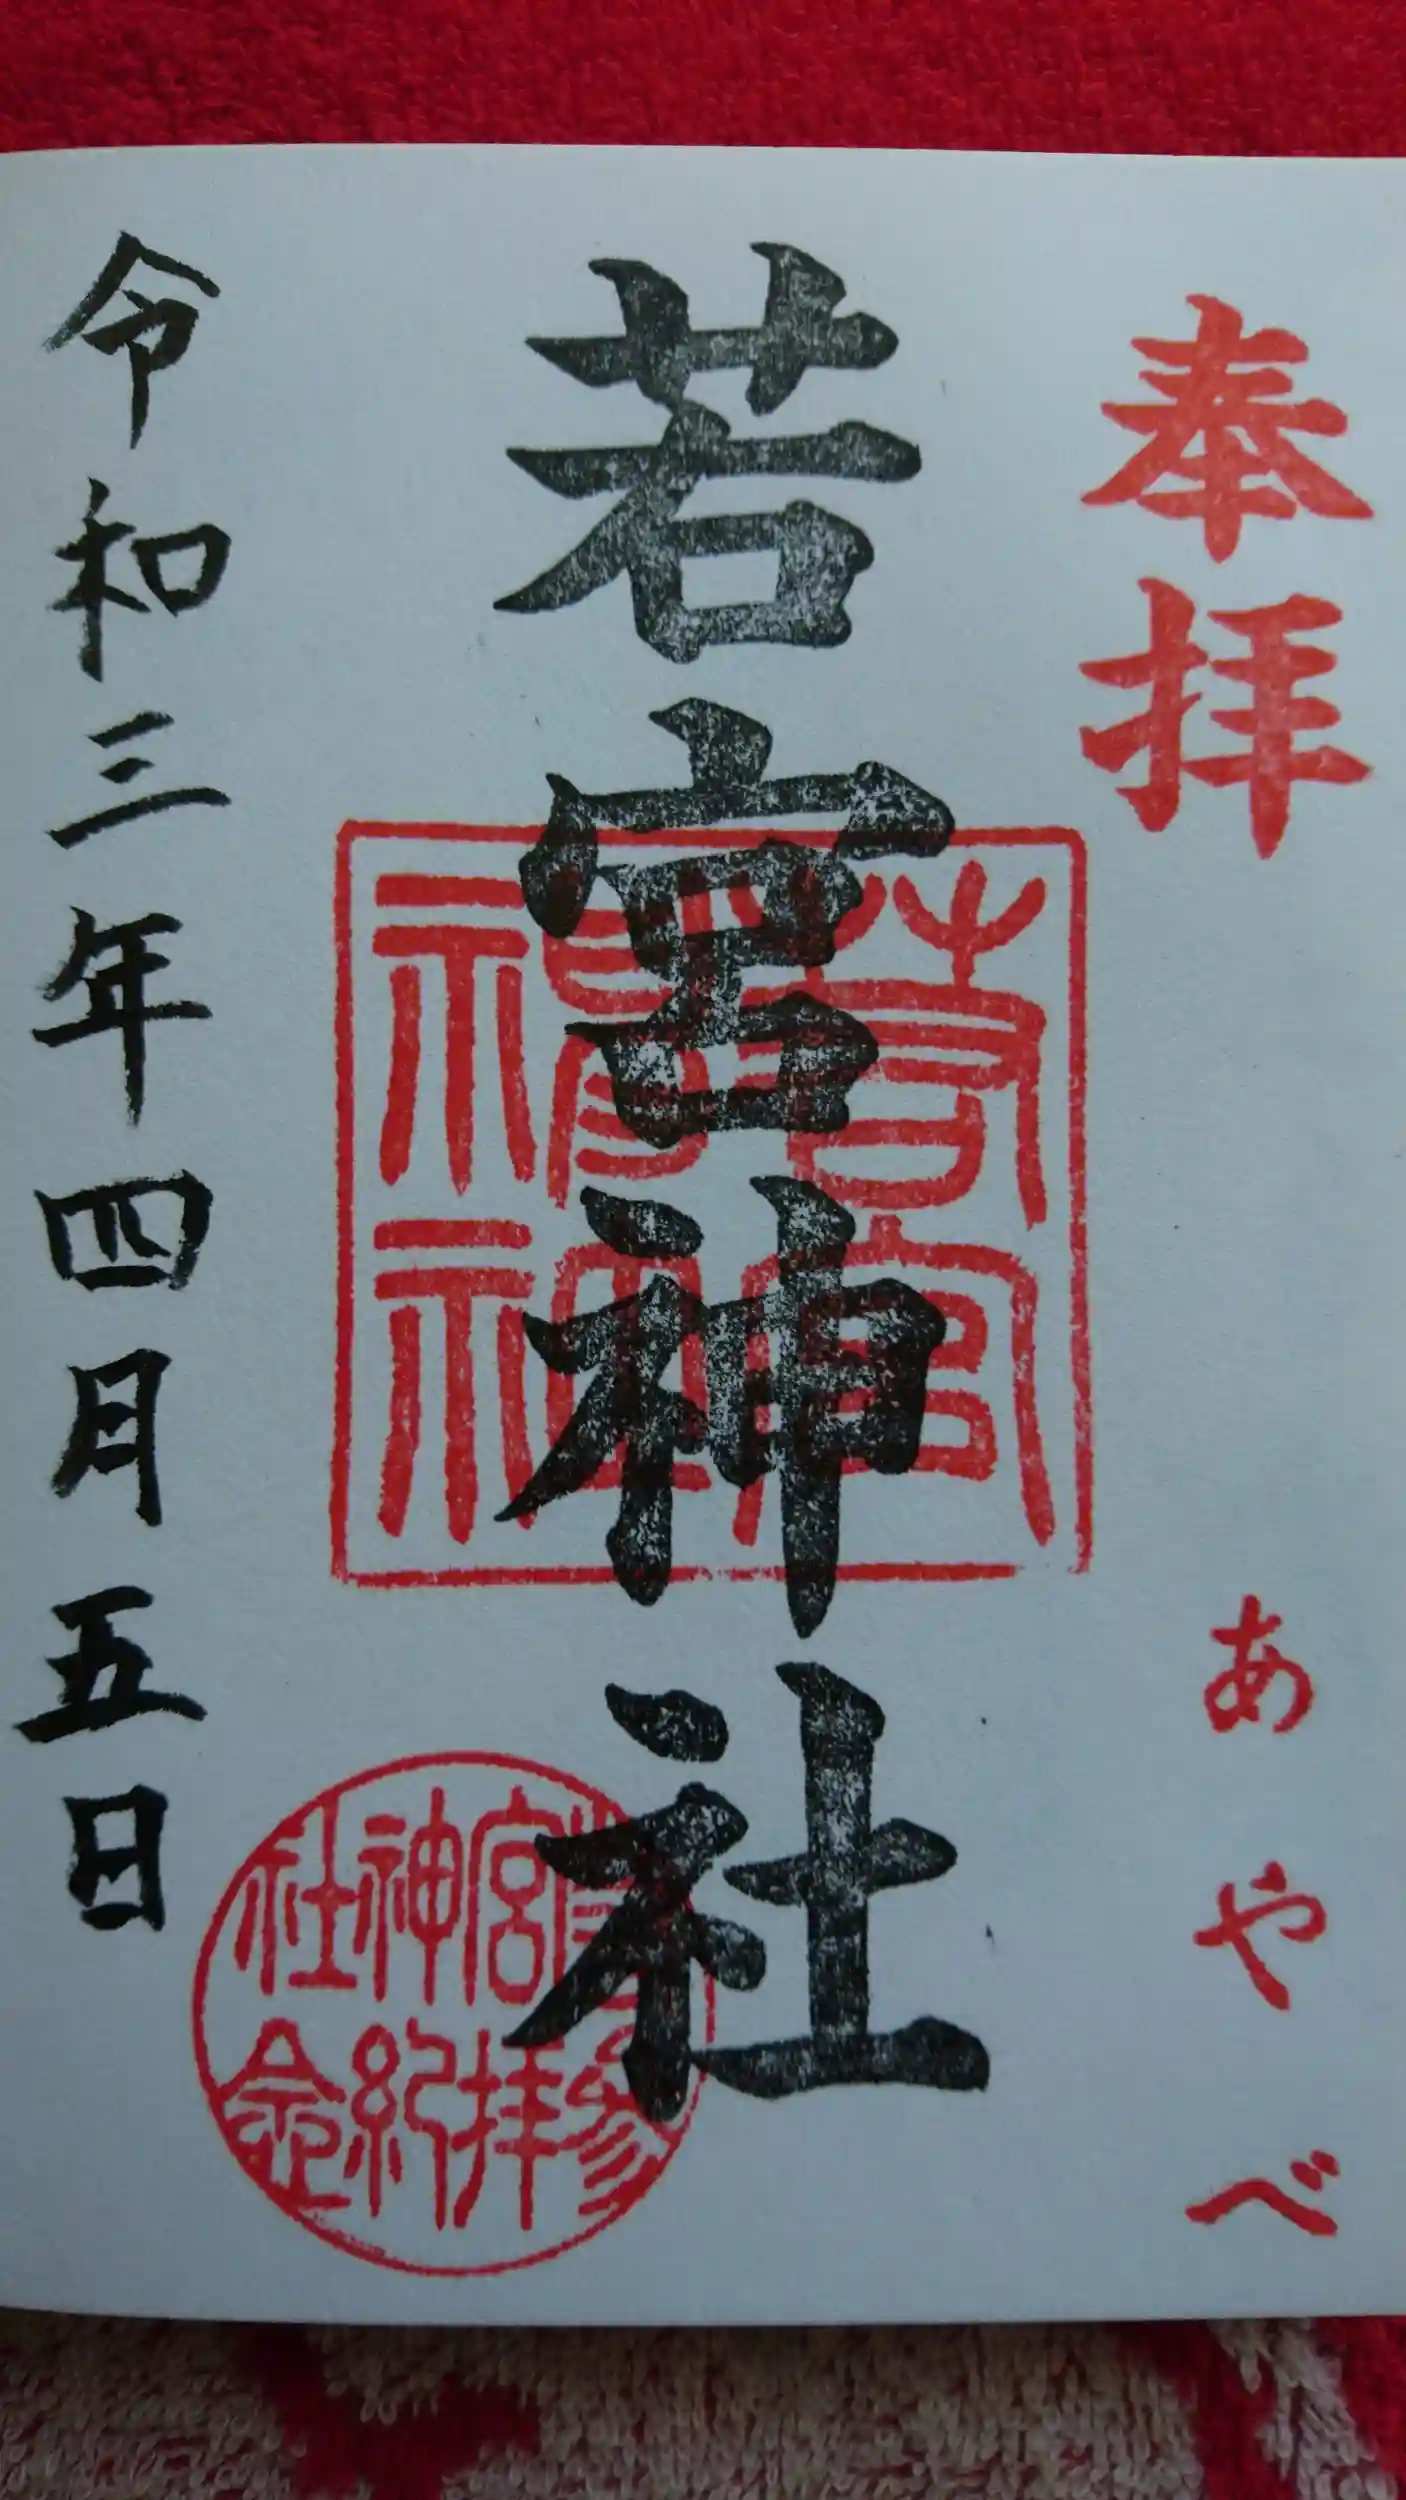 奉拝
あやべ
若宮神社
若宮
神社
宮神社
参拝紀念
令和三年四月五日